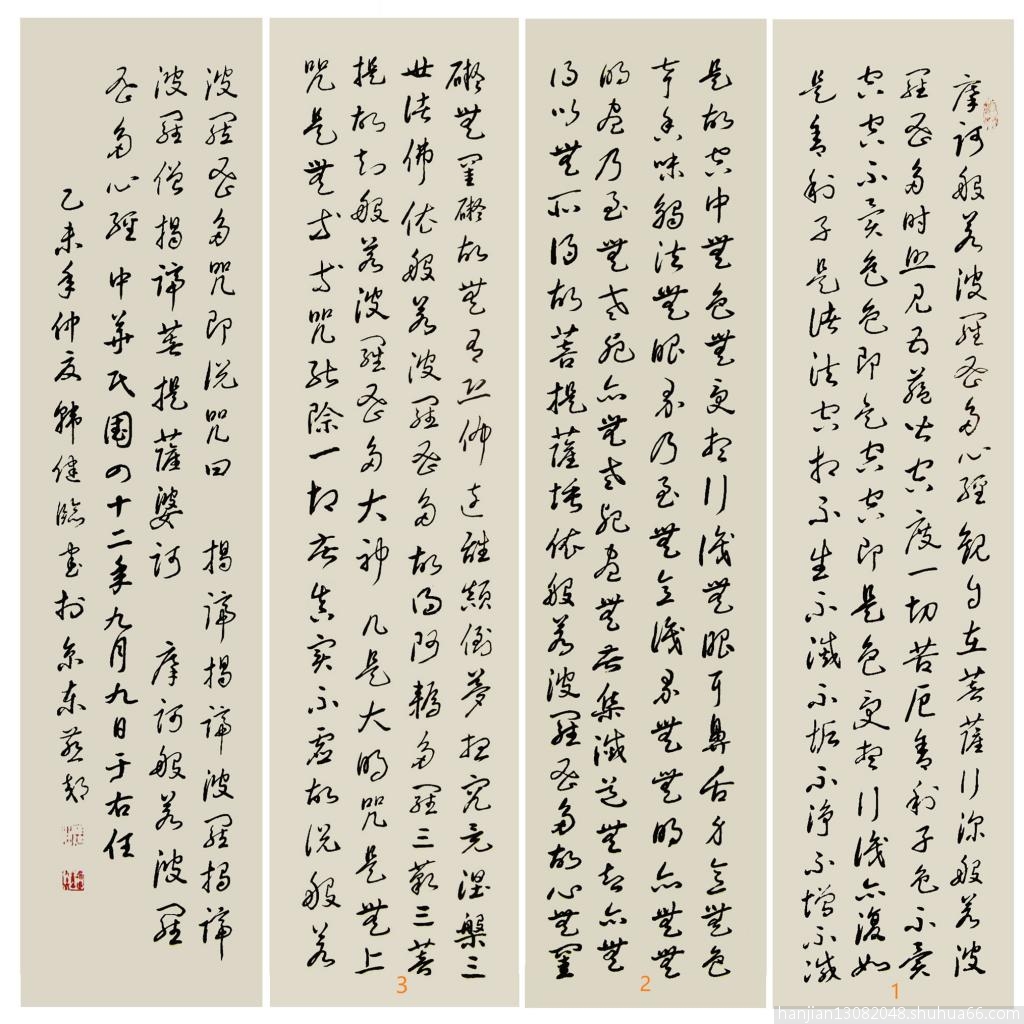 摩訶般若波羅蜜多心經觀自在菩薩行深般若波
羅蜜多時照見五蘊皆空度一切苦厄舍利子色不異
空空不異色色即是空空即是色受想行識亦復如
是舍利子是諸法空相不生不滅不垢不淨不增不減
1
是故空中無色無受想行識無眼耳鼻舌身意無色
聲香味觸法無眼界乃至無意識界無無明亦無無
明盡乃至無老死亦無老死盡無苦集滅道無智亦無
得以無所得故菩提薩埵依般若波羅蜜多故心無罣
2
礙無罣礙故無有恐怖遠離顛倒夢想究竟涅槃三
世諸佛依般若波羅蜜多故得阿耨多羅三藐三菩
提故知般若波羅蜜多大神咒是大明咒是無上
咒是無等等咒能除一切苦真實不虛故說般若
3
波羅蜜多咒即說咒曰 揭諦揭諦波羅揭諦
波羅僧揭諦菩提薩婆訶 摩訶般若波羅
蜜多心經中華民國四十二年九月九日于右任
乙未年仲夏韓健臨書於京東燕郊
hanjian13082048.shuhua66.com